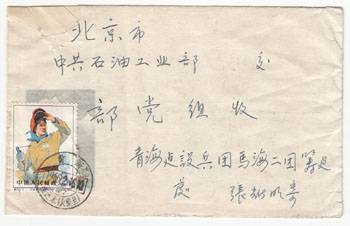 北京市
中共石油工业部 交
部党组收
青海建設兵团馬海二团
張
中国人民邮政